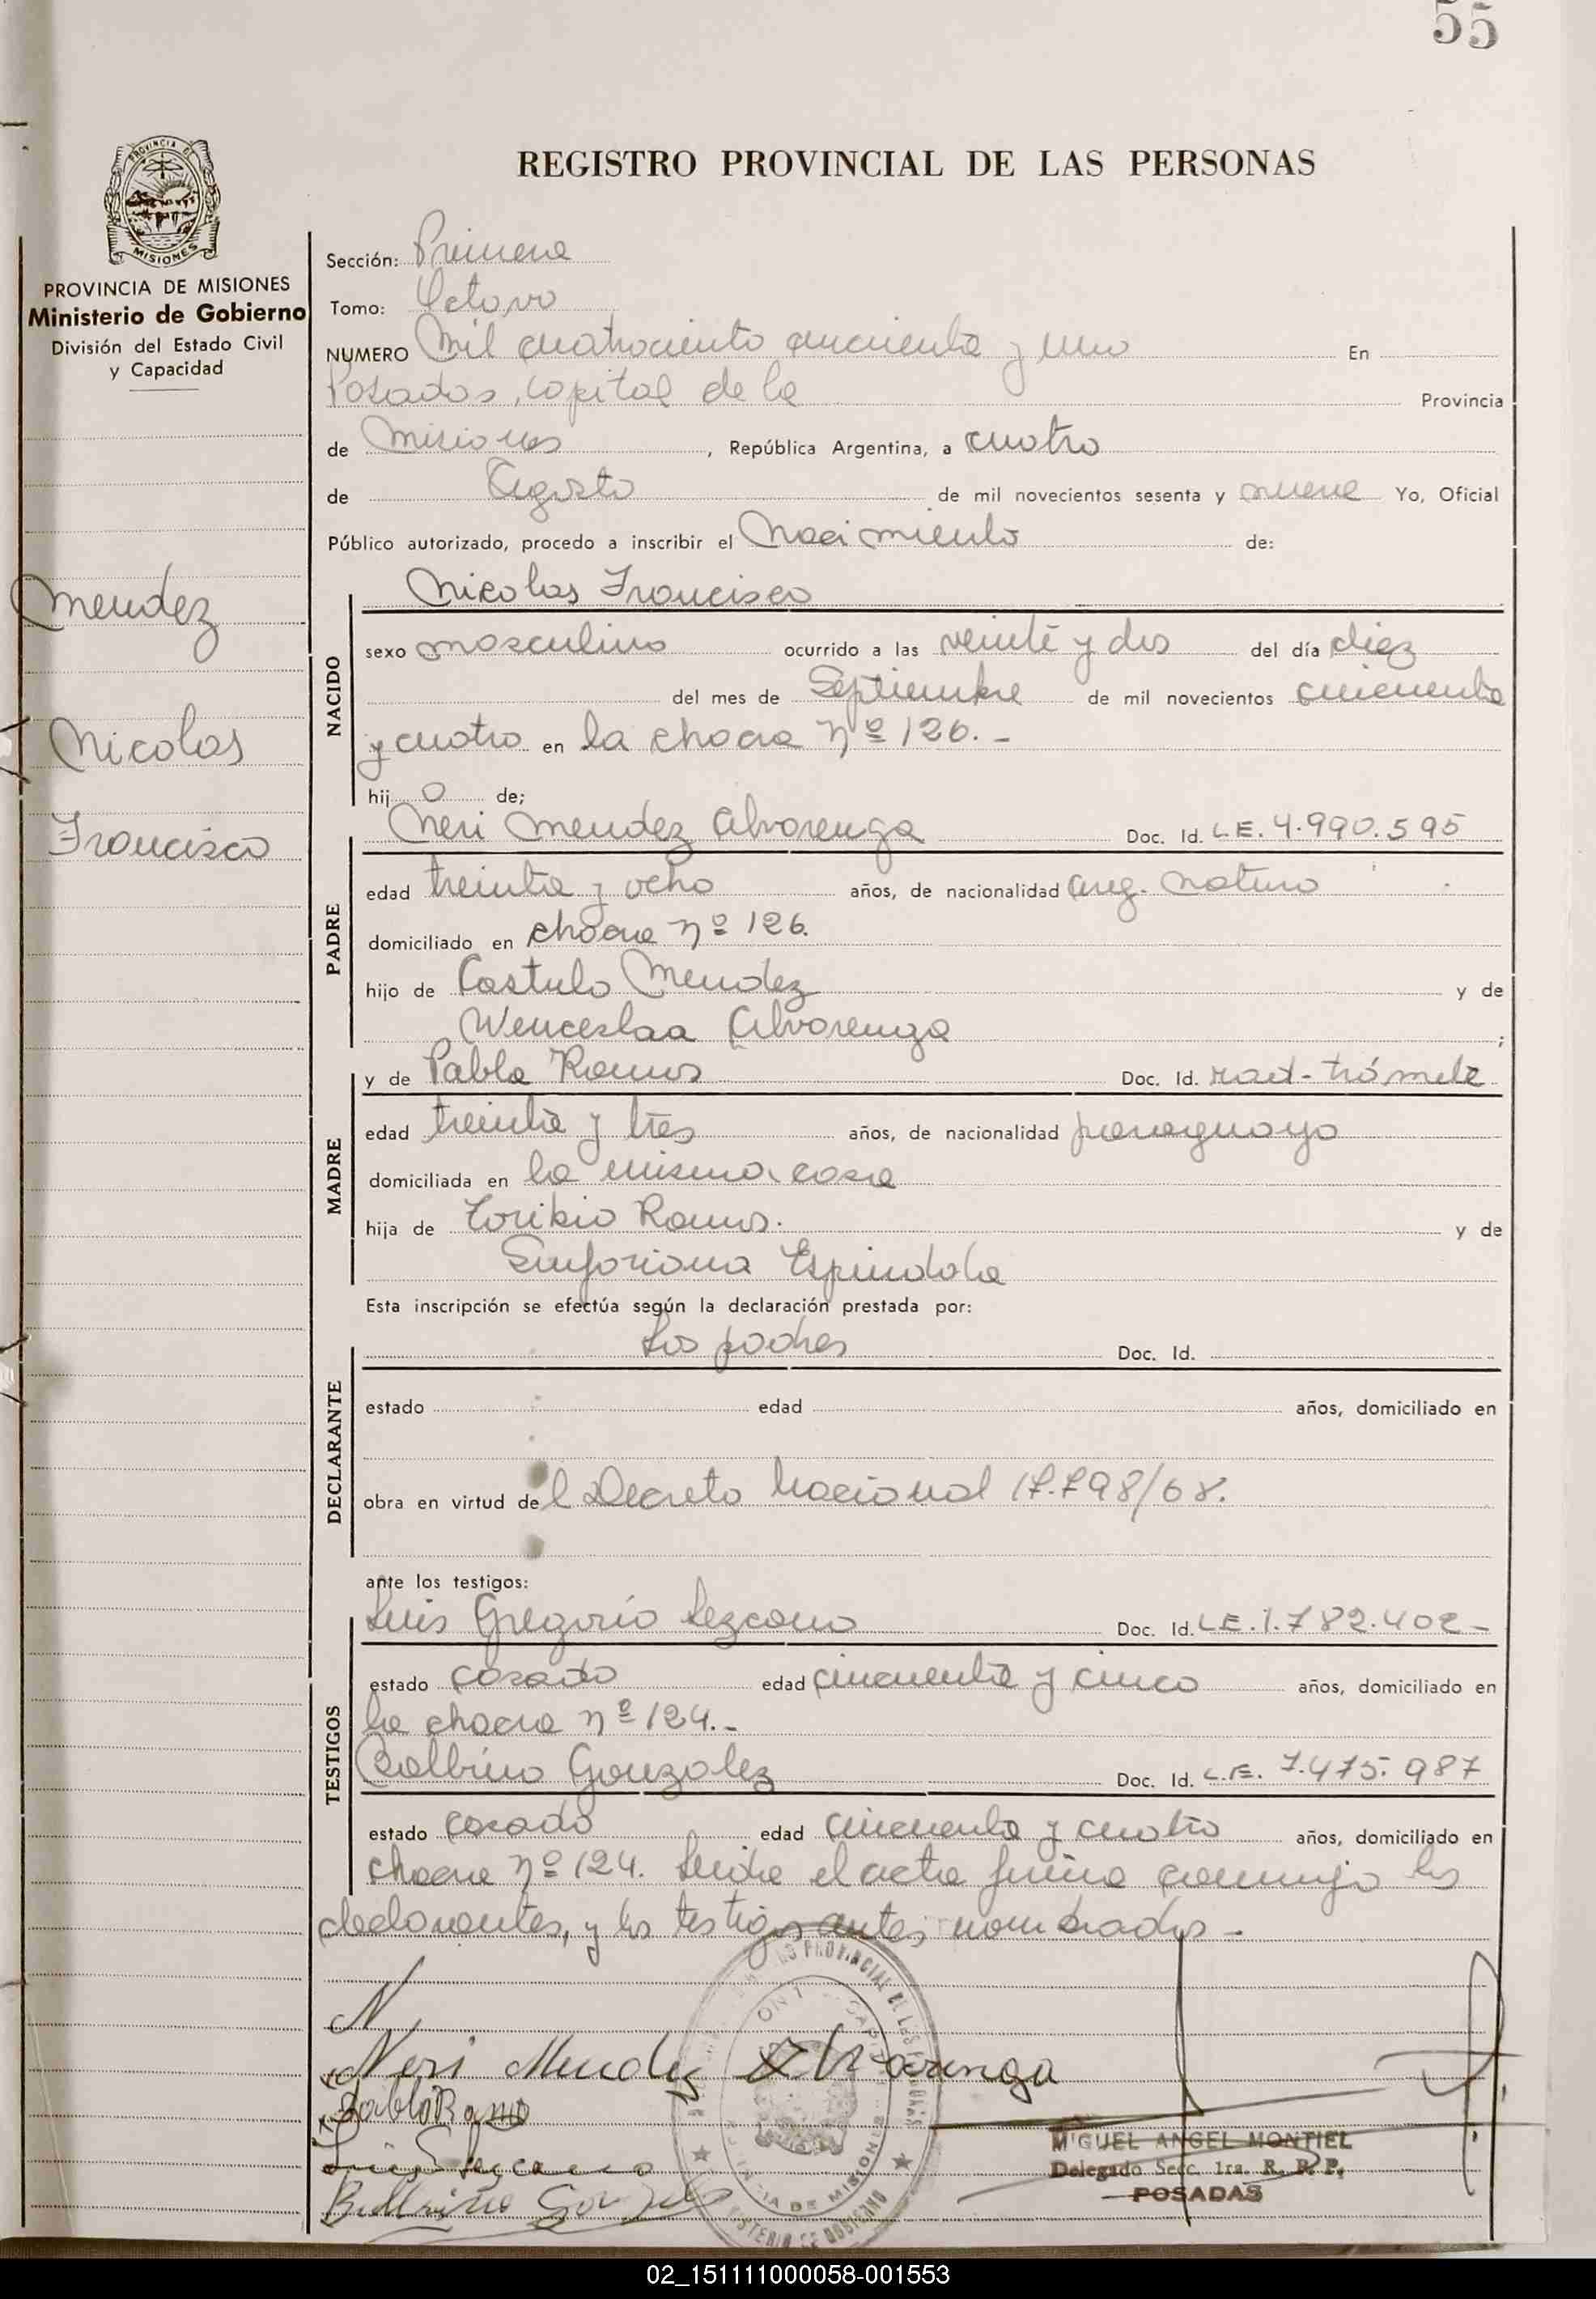 55
REGISTRO PROVINCIAL DE LAS PERSONAS
PROVINCIA DE MISIONES
PROVINCIA DE MISIONES
Ministerio de Gobierno
División del Estado Civil
y Capacidad
Mendez
Nicolas
Francisco
Sección: Primera
Tomo: Octavo
NUMERO Mil cuatrociento cincuenta y uno En
Posadas, capital de la Provincia
de Misiones, República Argentina, a cuatro
de Agosto de mil novecientos sesenta y nueve Yo, Oficial
Público autorizado, procedo a inscribir el Nacimiento de:
Nicolas Francisco
NACIDO
sexo masculino ocurrido a las veinte y dos del día diez
del mes de Septiembre de mil novecientos cincuenta
y cuatro en la chacra Nº 126.-
hijo de;
Neri Mendez Alvarenga Doc. Id. L.E. 4.990.595
PADRE
edad treinta y ocho años, de nacionalidad arg. nativo
domiciliado en chacra Nº 126.
hijo de Castulo Mendez y de
Wenceslaa Alvarenga;
y de Pabla Ramos Doc. Id. rad-trámite
MADRE
edad treinta y tres años, de nacionalidad paraguaya
domiciliada en la misma casa
hija de Toribio Ramos. y de
Sinforiana Espindola
Esta inscripción se efectúa según la declaración prestada por:
los padres Doc. Id.
DECLARANTE
estado edad años, domiciliado en
obra en virtud del Decreto Nacional 17.798/68.
ante los testigos:
Luis Gregorio Lezcano Doc. Id. L.E. 1.782.402-
TESTIGOS
estado casado edad cincuenta y cinco años, domiciliado en
la chacra Nº 124.-
Balbino Gonzalez Doc. Id. L.E. 7.475.987
estado casado edad cincuenta y cuatro años, domiciliado en
chacra Nº 124. Leida el acta firma conmigo los
declarantes, y los testigos antes nombrados-
N
Neri Mendez Alvarenga
Pabla Ramo
Luis Lezcano
Balbino Gonzalez
MIGUEL ANGEL MONTIEL
Delegado Secc. 1ra. R. P. P.
POSADAS
02_151111000058-001553